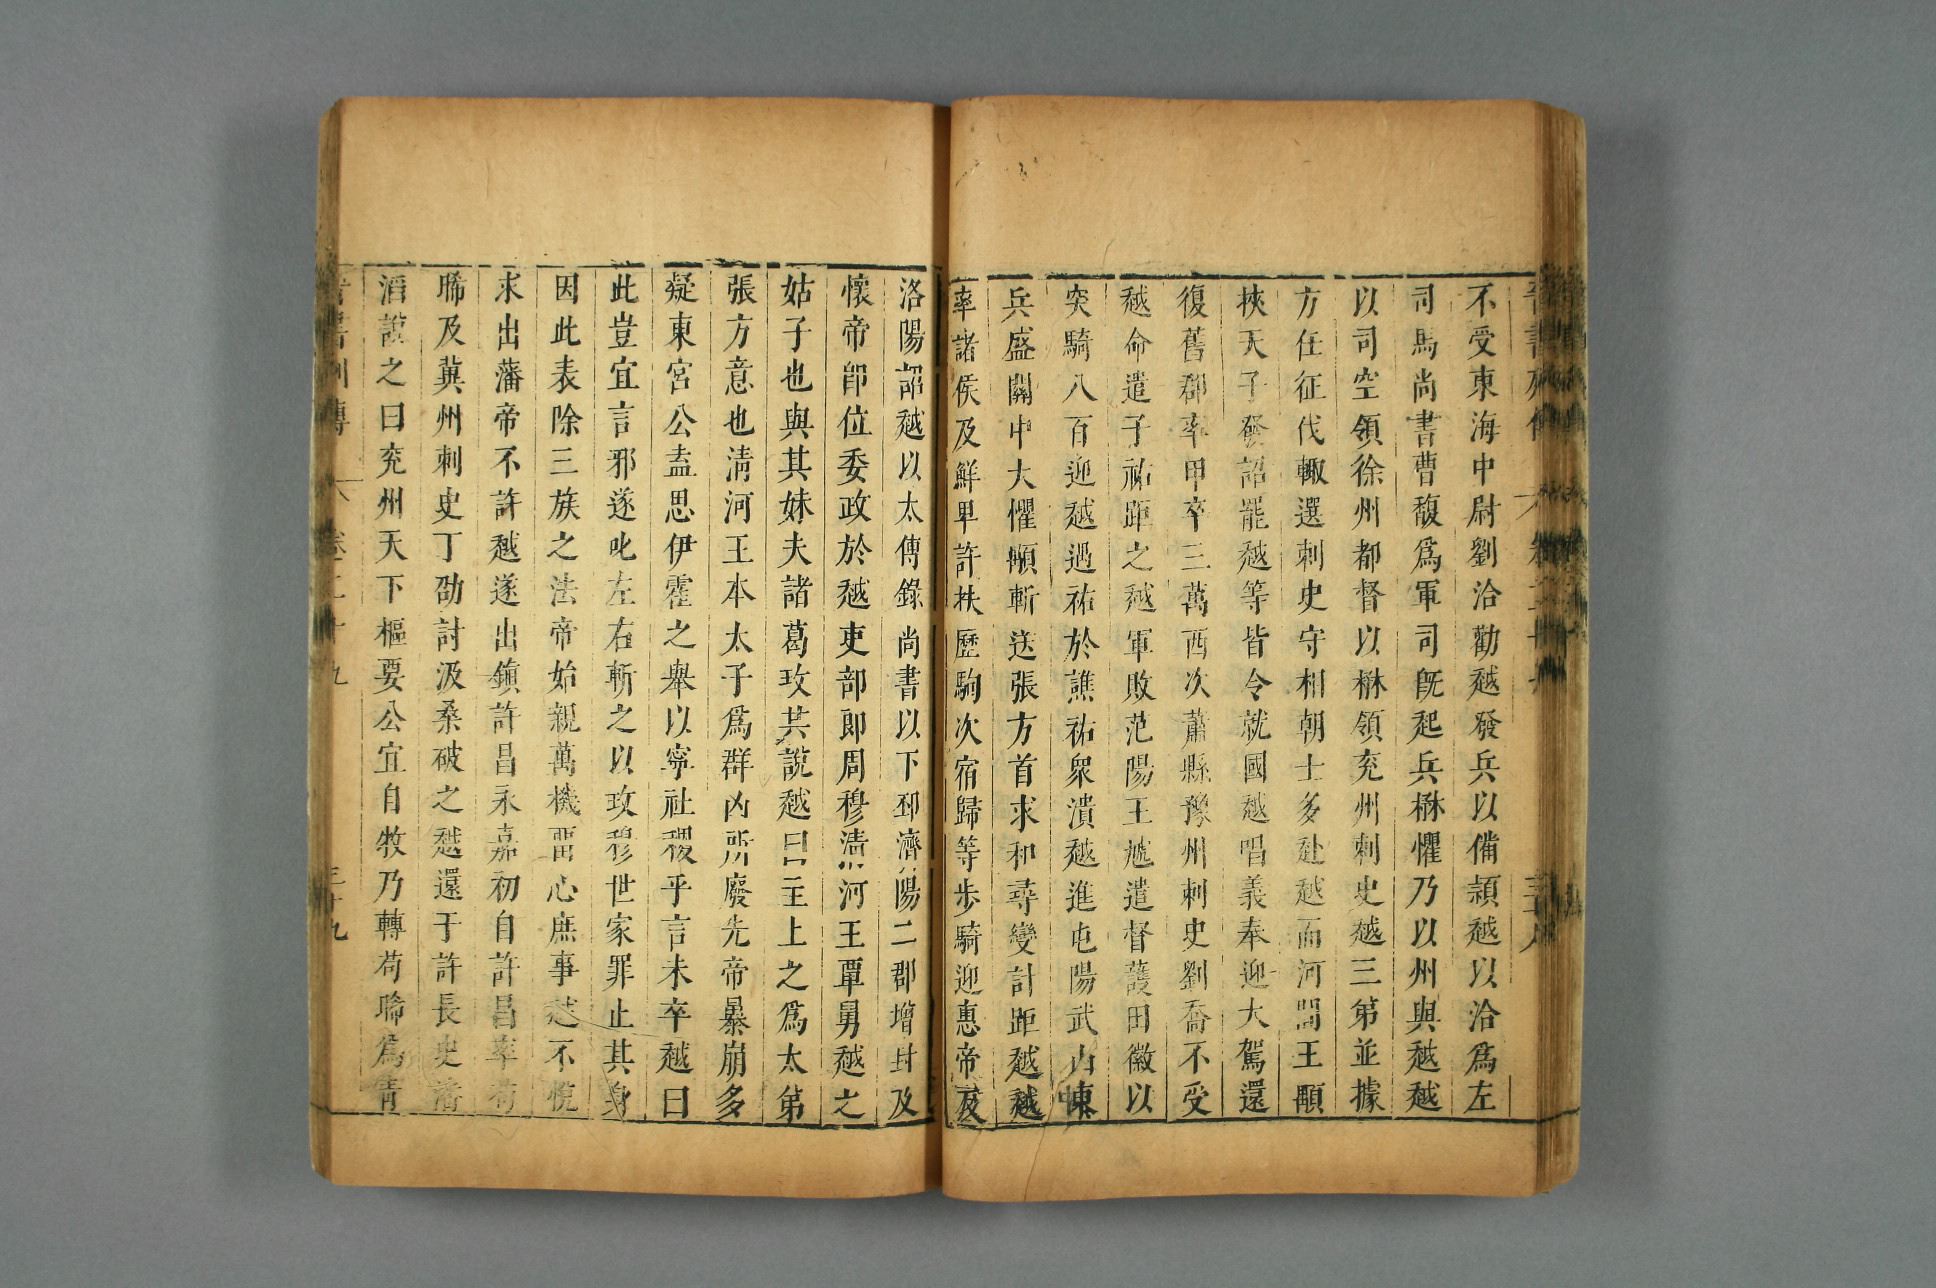 不受東海中尉劉洽勸越發兵以備頴越以洽爲左
司馬尚書曹馥爲軍司旣起兵楙懼乃以州與越越
以司空領徐州都督以楙領兖州刺史越三第並據
方任征伐輙選刺史守相朝士多赴越而河間王顒
挾天子發詔罷越等皆令就國越唱義奉迎大駕還
復舊都率甲卒三萬西次蕭縣豫州刺史劉喬不受
越命遣子祐距之越軍敗范陽王虓遣督護田徽以
突騎八百迎越遇祐於譙祐衆潰越進屯陽武山東
兵盛關中大懼顒斬送張方首求和尋變計距越越
率諸侯及鮮卑許扶歷駒次宿歸等步騎迎惠帝反
洛陽詔越以太傅錄尚書以下邳濟陽二郡增封及
懷帝卽位委政於越吏部郎周穆清河王覃舅越之
姑子也與其妹夫諸葛玫共說越曰主上之爲太第
張方意也清河王本太子爲群凶所廢先帝暴崩多
疑東宮公盍思伊霍之舉以寧社稷乎言未卒越曰
此豈宜言邪遂叱左右斬之以玫穆世家罪止其身
因此表除三族之法帝始親萬機畱心庶事越不悅
求出藩帝不許越遂出鎮許昌永嘉初自許昌率苟
晞及冀州刺史丁劭討汲桑破之越還于許長史潘
滔說之曰兖州天下樞要公宜自牧乃轉苟晞爲青
晉書列傳 卷二十九 三十九